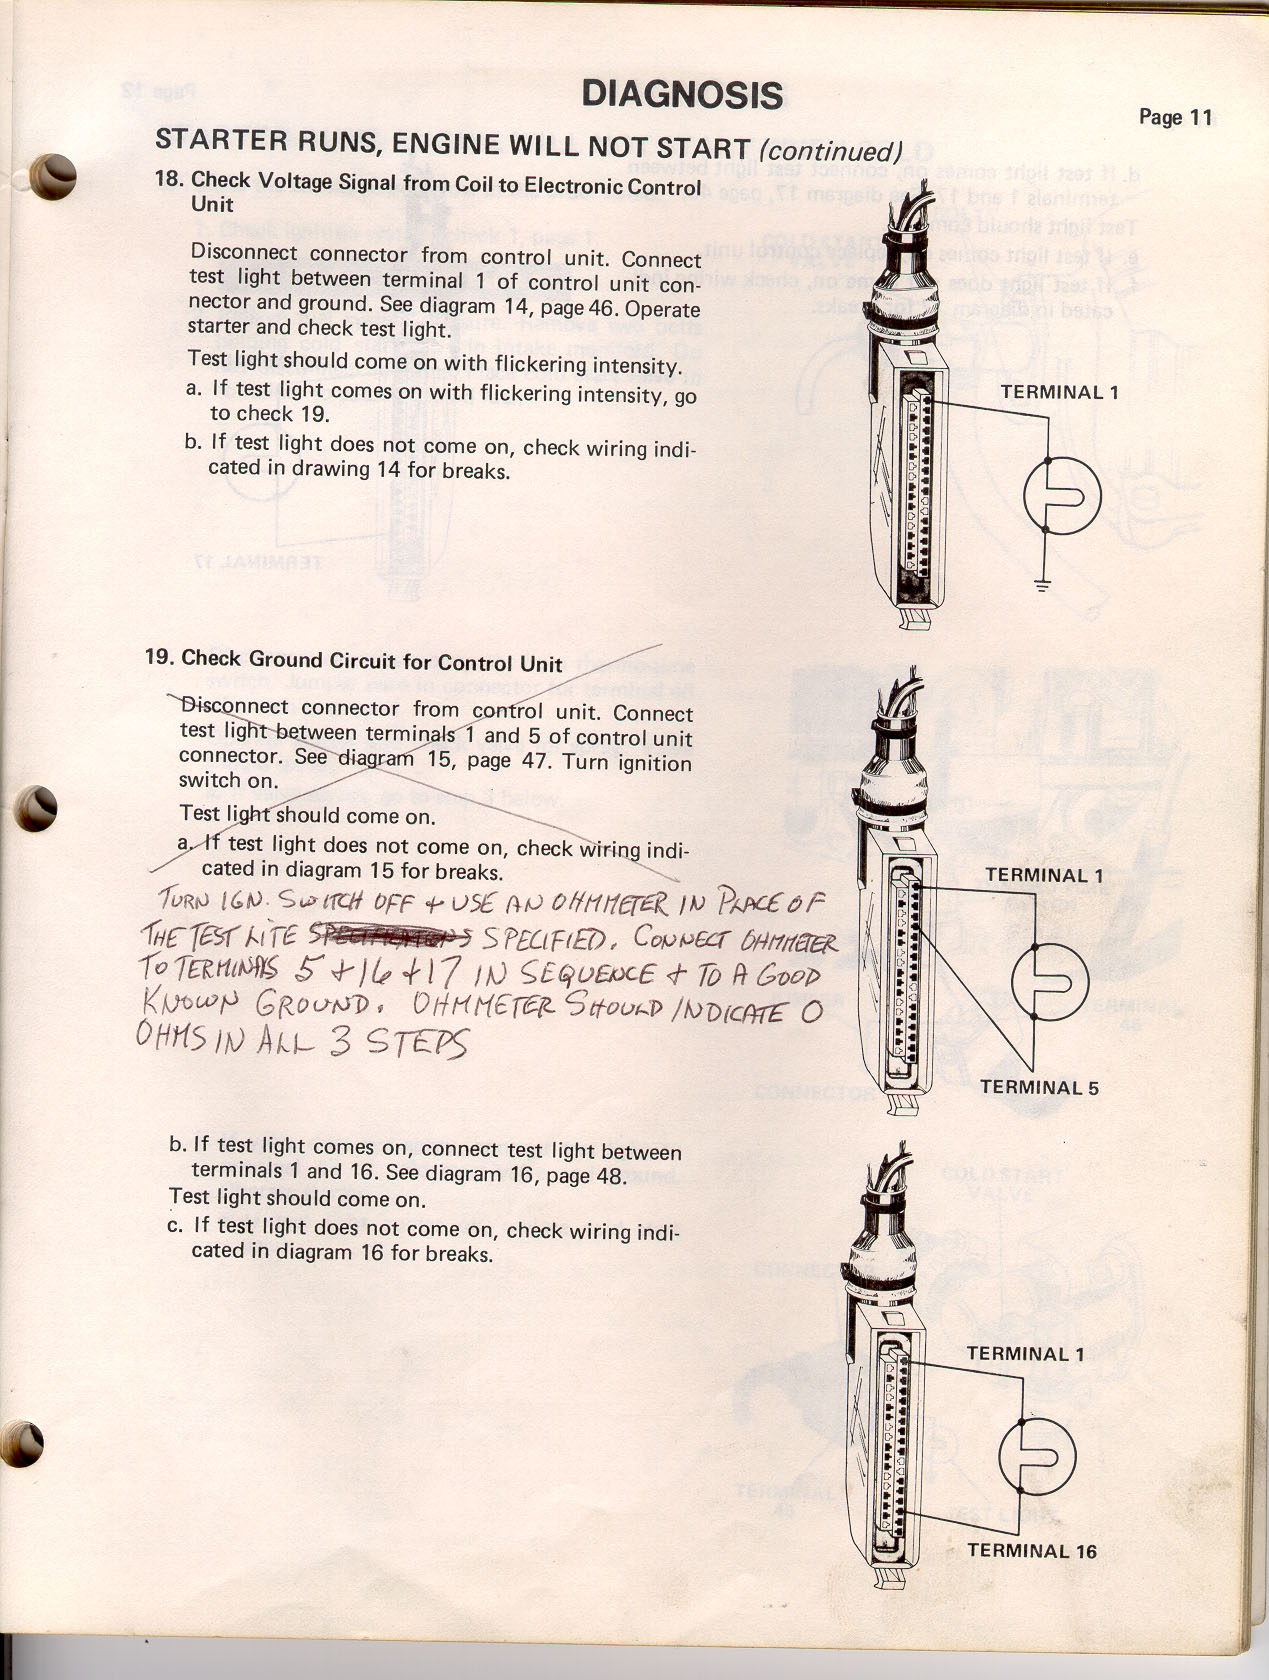 DIAGNOSIS
Page 11
STARTER RUNS, ENGINE WILL NOT START (continued)
18. Check Voltage Signal from Coil to Electronic Control
Unit
Disconnect connector from control unit. Connect
test light between terminal 1 of control unit con-
nector and ground. See diagram 14, page 46. Operate
starter and check test light.
Test light should come on with flickering intensity.
a. If test light comes on with flickering intensity, go
to check 19.
b. If test light does not come on, check wiring indi-
cated in drawing 14 for breaks.
TERMINAL 1
19. Check Ground Circuit for Control Unit
Disconnect connector from control unit. Connect
test light between terminals 1 and 5 of control unit
connector. See diagram 15, page 47. Turn ignition
switch on.
Test light should come on.
a. If test light does not come on, check wiring indi-
cated in diagram 15 for breaks.
TURN IGN. SWITCH OFF + USE AN OHMMETER IN PLACE OF
THE TEST LITE SPECIFIED. CONNECT OHMMETER
TO TERMINALS 5 + 16 + 17 IN SEQUENCE + TO A GOOD
KNOWN GROUND. OHMMETER SHOULD INDICATE 0
OHMS IN ALL 3 STEPS
TERMINAL 1
TERMINAL 5
b. If test light comes on, connect test light between
terminals 1 and 16. See diagram 16, page 48.
Test light should come on.
c. If test light does not come on, check wiring indi-
cated in diagram 16 for breaks.
TERMINAL 1
TERMINAL 16